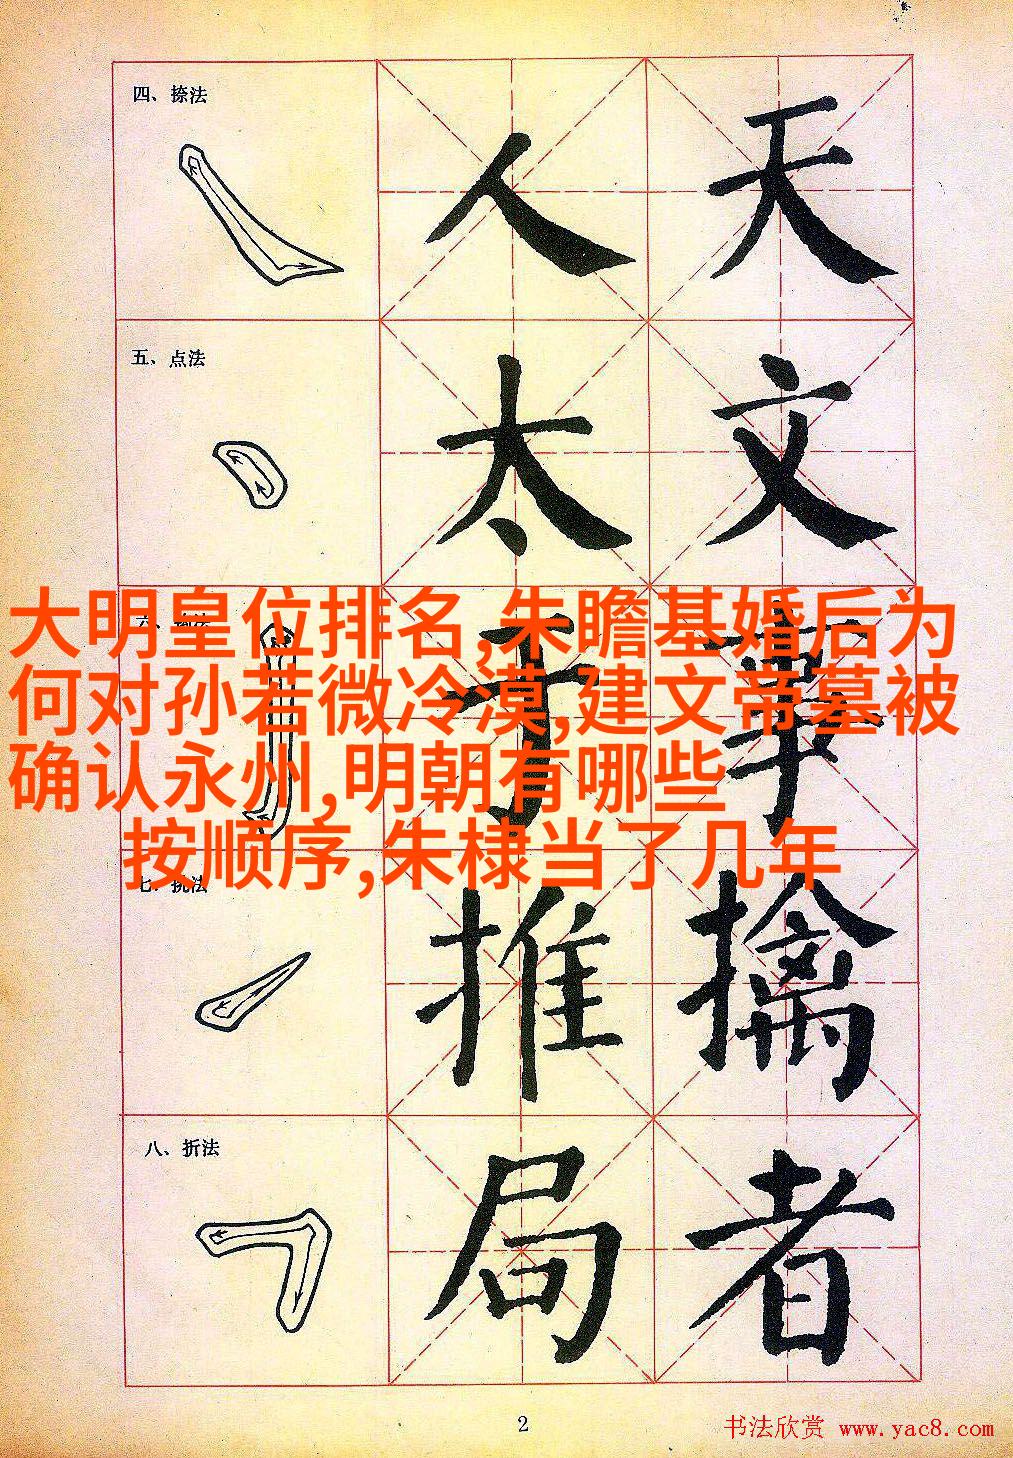 四、捺法
人 天
五、点法
太 文
大明皇位排名,朱瞻基婚后为
何对孙若微冷漠,建文帝墓被
确认永州,明朝有哪些
按顺序,朱棣当了几年
七、挑法
推 擒
八、折法
局 者
2
书法欣赏 www.yac8.com